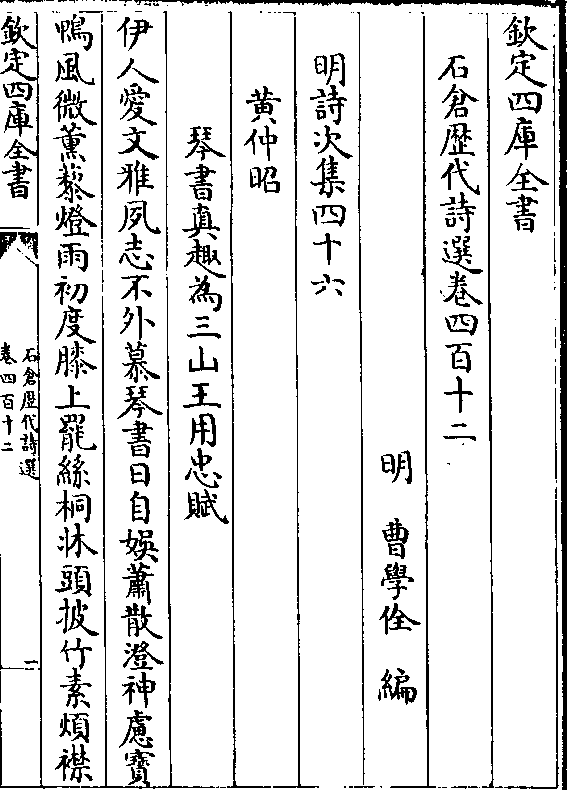 欽定四庫全書
石倉歴代詩選卷四百十二
明 曹學佺 編
明詩次集四十六
黄仲昭
琴書真趣為三山王用忠賦
伊人愛文雅夙志不外慕琴書日自娛蕭散澄神慮寶
鴨風微薰藜燈雨初度膝上罷絲桐牀頭披竹素煩襟
欽定四庫全書
石倉歴代詩選
卷四百十二
一